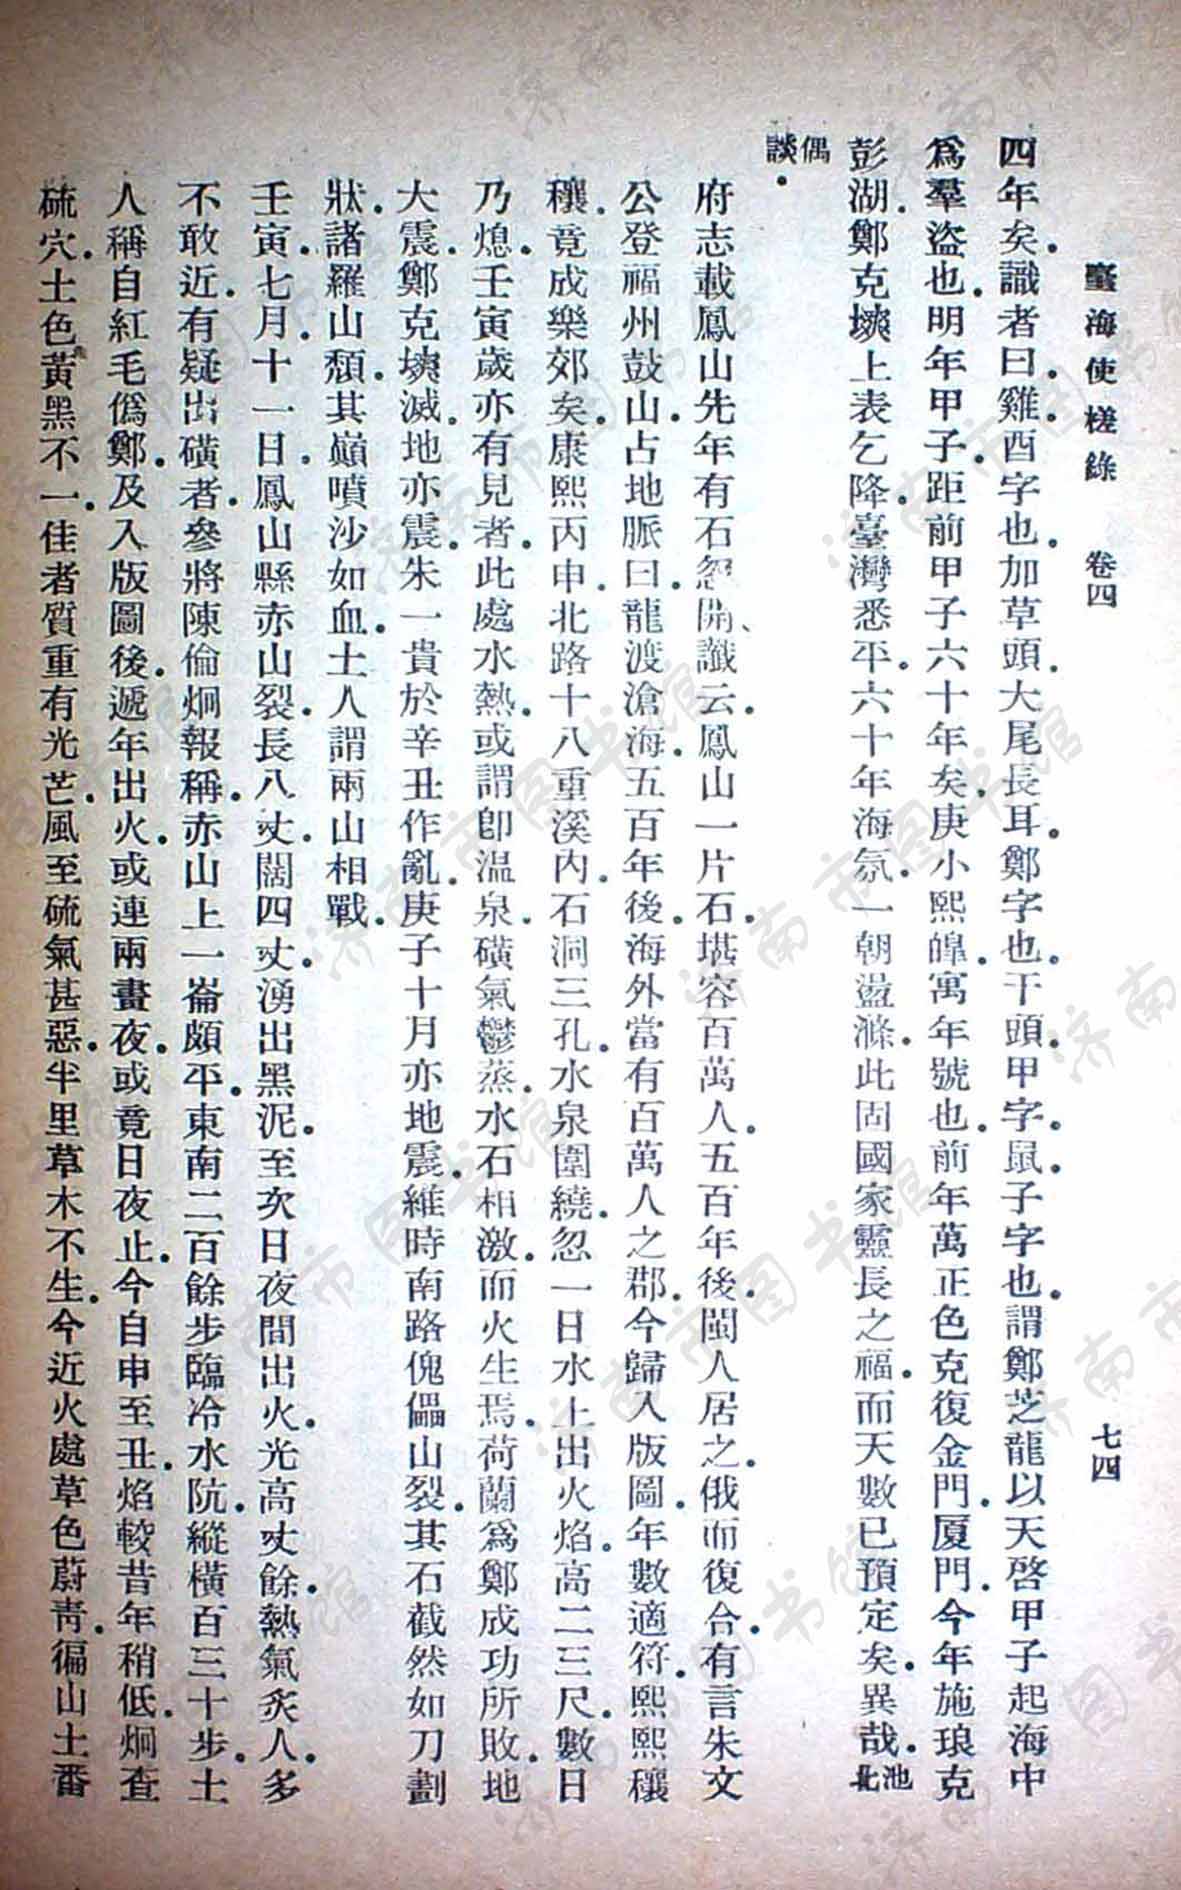 臺海使槎錄　卷四　七四
四年矣．識者曰．雞．酉字也．加草頭．大尾．長耳．鄭字也．干頭．甲字．鼠．子字也．謂鄭芝龍以天啓甲子起海中
爲羣盜也．明年甲子．距前甲子六十年矣．庚小熙皡．寓年號也．前年萬正色克復金門．厦門．今年施琅克
彭湖．鄭克塽上表乞降．臺灣悉平．六十年海氛．一朝盪滌．此固國家靈長之福．而天數已預定矣．異哉．池北
偶談．
府志載鳳山先年有石忽開、讖云．鳳山一片石．堪容百萬人．五百年後．閩人居之．俄而復合．有言朱文
公登福州鼓山．占地脈曰．龍渡滄海．五百年後．海外當有百萬人之郡．今歸入版圖．年數適符．熙熙穰
穰．竟成樂郊矣．康熙丙申．北路十八重溪內．石洞三孔．水泉圍繞．忽一日水上出火焰．高二三尺．數日
乃熄．壬寅歲亦有見者．此處水熱．或謂卽溫泉．磺氣鬱蒸．水石相激．而火生焉．荷蘭爲鄭成功所敗．地
大震．鄭克塽滅．地亦震．朱一貴於辛丑作亂．庚子十月亦地震．維時南路傀儡山裂．其石截然如刀劃
狀．諸羅山頹．其巔噴沙如血．土人謂兩山相戰．
壬寅．七月．十一日．鳳山縣赤山裂．長八丈．闊四丈．湧出黑泥．至次日夜間出火．光高丈餘．熱氣炙人．多
不敢近．有疑出磺者．參將陳倫炯報稱．赤山上一崙頗平．東南二百餘步臨冷水阬．縱橫百三十步．土
人稱自紅毛僞鄭．及入版圖後．遞年出火．或連兩晝夜．或竟日夜止．今自申至丑．焰較昔年稍低．炯查
硫穴．土色黃黑不一．佳者質重有光芒．風至硫氣甚惡．半里草木不生．今近火處草色蔚靑．徧山土番